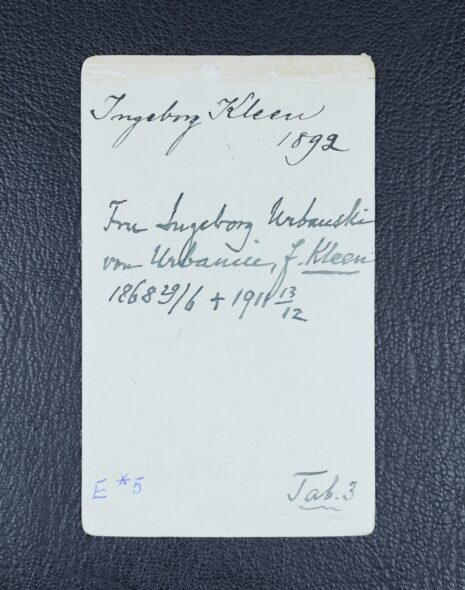 Ingeborg Kleen
1892
Fru Ingeborg Urbanski
von Urbanic, f. Kleen
1868 29/6 + 1911 13/12
E *5
Tab. 3